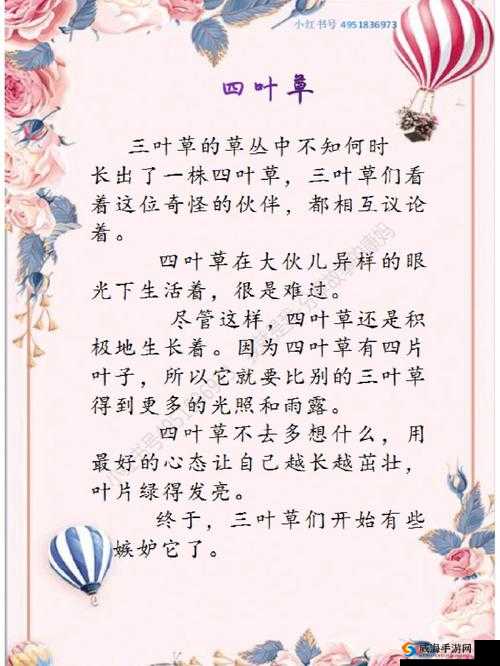 小红书号 4951836973
四叶草
三叶草的草丛中不知何时
长出了一株四叶草，三叶草们看
着这位奇怪的伙伴，都相互议论
着。
四叶草在大伙儿异样的眼
光下生活着，很是难过。
尽管这样，四叶草还是积
极地生长着。因为四叶草有四片
叶子，所以它就要比别的三叶草
得到更多的光照和雨露。
四叶草不去多想什么，用
最好的心态让自己越长越茁壮，
叶片绿得发亮。
终于，三叶草们开始有些
嫉妒它了。
威海手游网